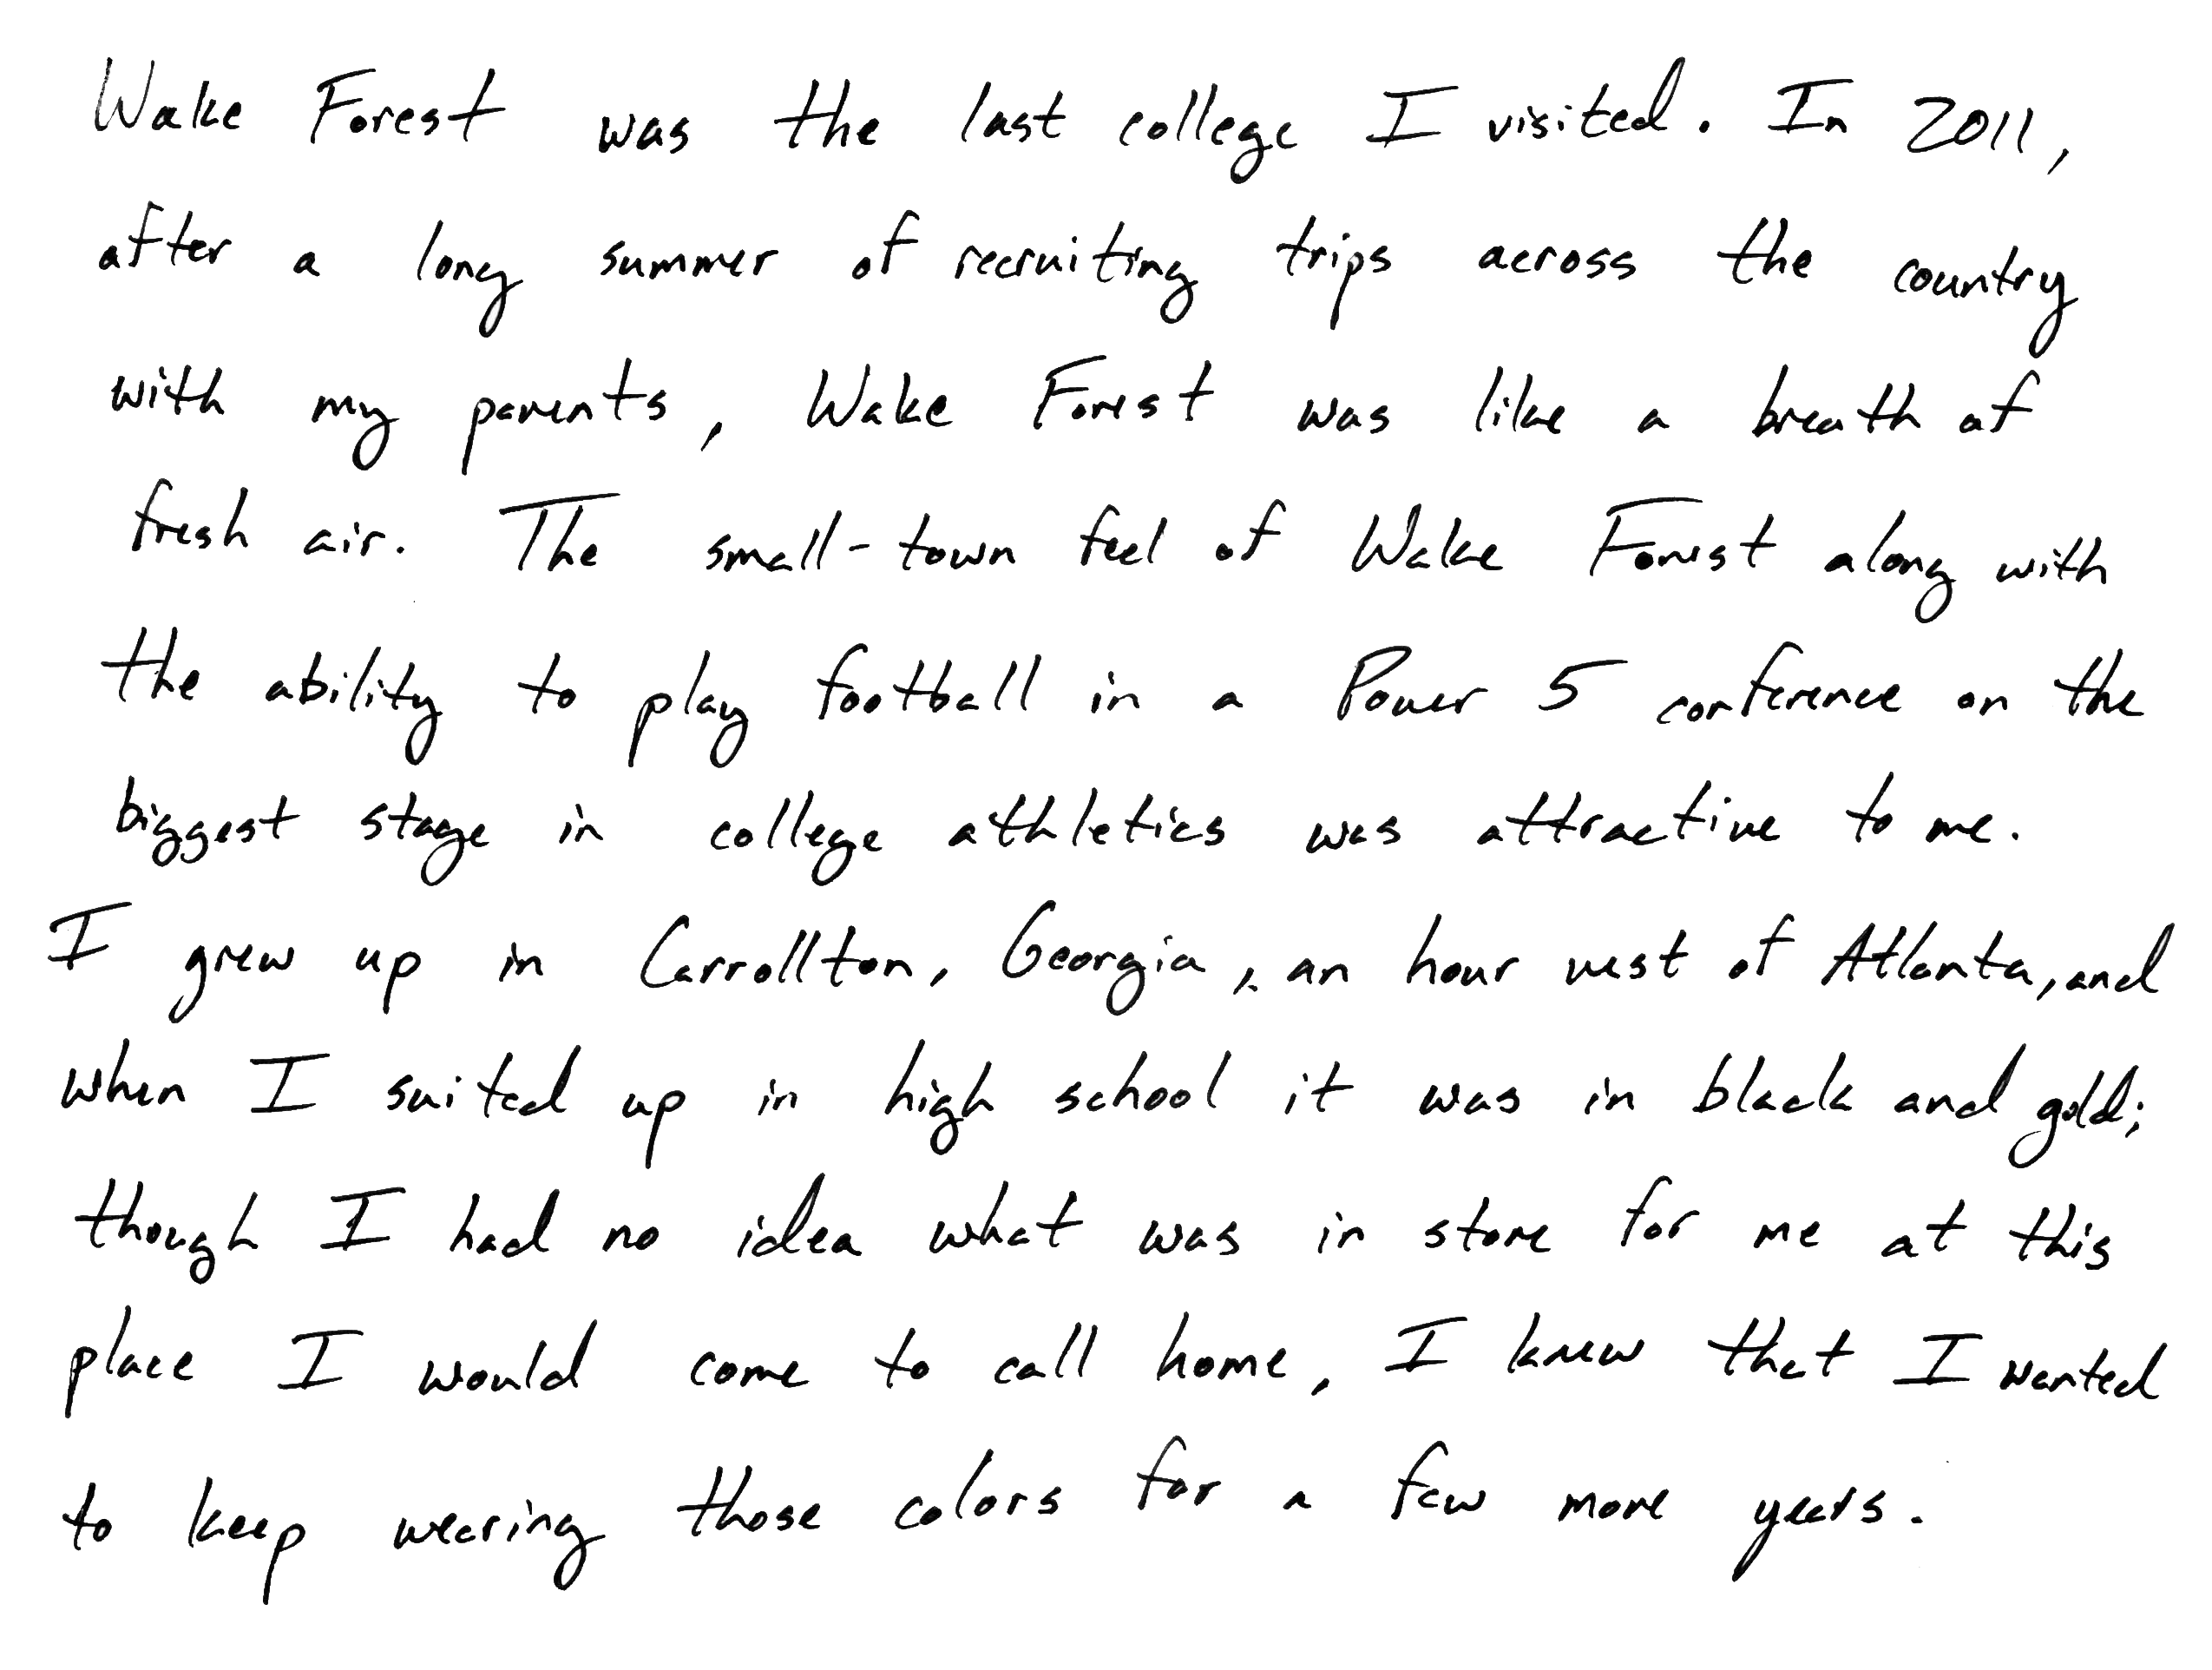 Wake Forest was the last college I visited. In 2011,
after a long summer of recruiting trips across the country
with my parents, Wake Forest was like a breath of
fresh air. The small-town feel of Wake Forest along with
the ability to play football in a Power 5 conference on the
biggest stage in college athletics was attractive to me.
I grew up in Carrollton, Georgia, an hour west of Atlanta, and
when I suited up in high school it was in black and gold;
though I had no idea what was in store for me at this
place I would come to call home, I knew that I wanted
to keep wearing those colors for a few more years.